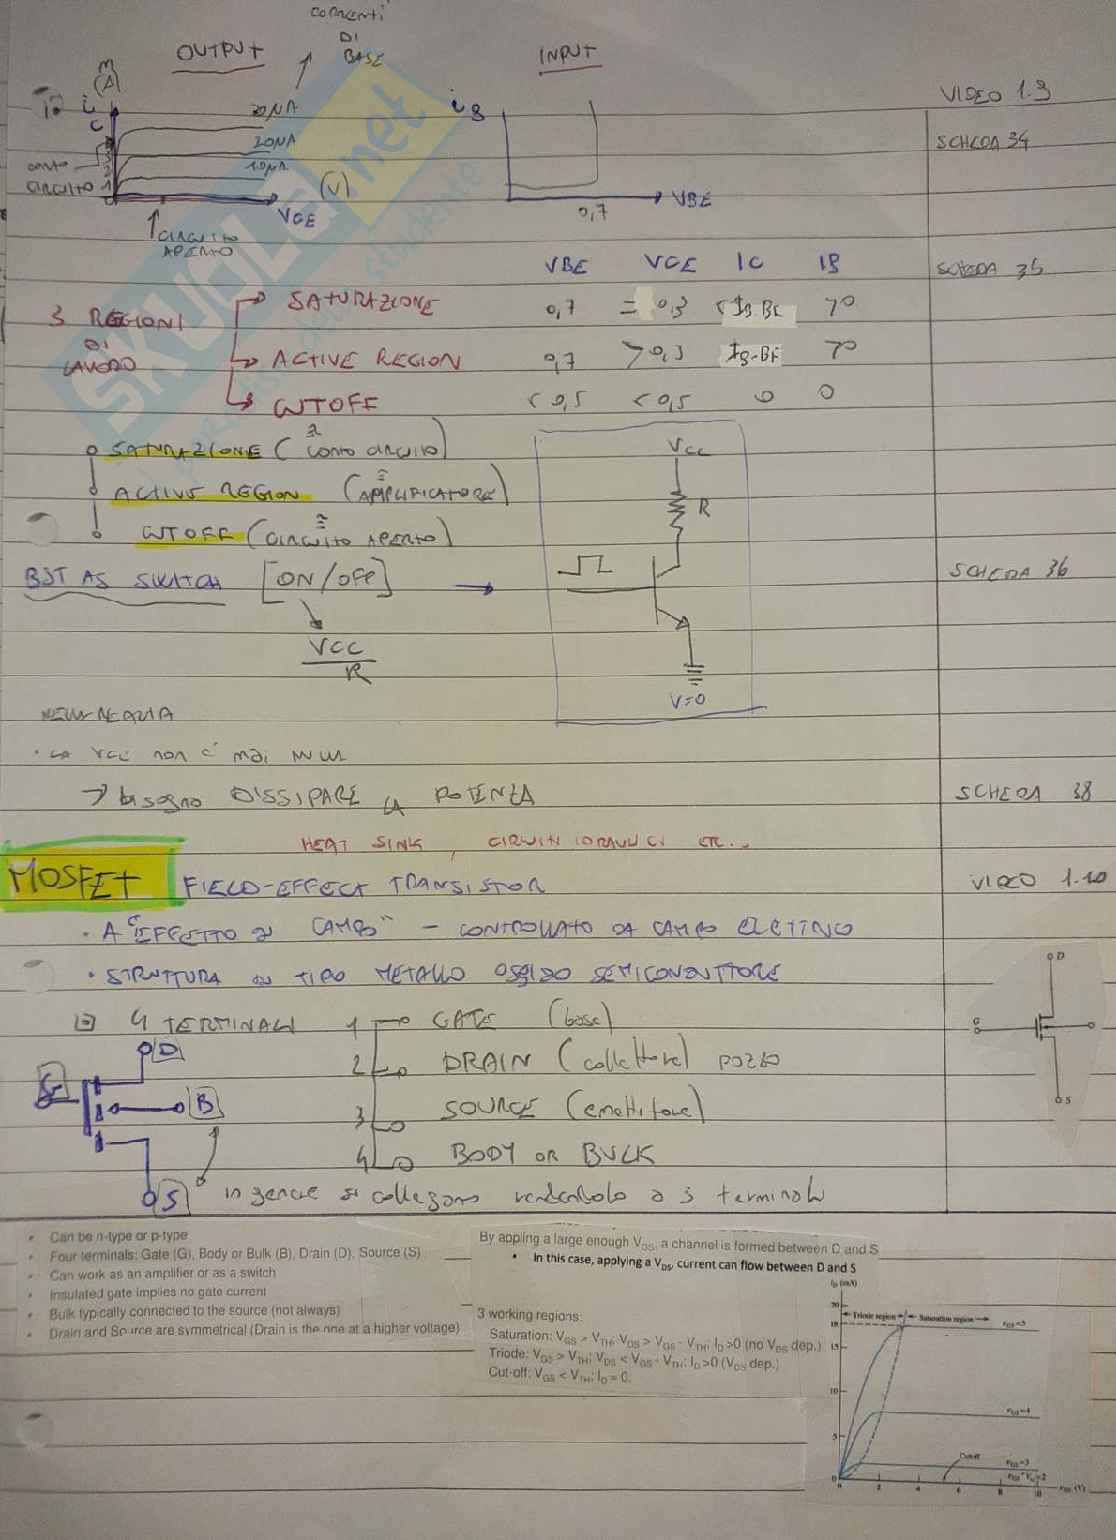 CORRENTI
DI
BASE
OUTPUT
INPUT
(A)
30μA
20μA
10μA
iC
iB
CORTO
CIRCUITO
(V)
VCE
CIRCUITO
APERTO
0,7
VBE
VIDEO 1.9
SCHEDA 34
SCHEDA 35
VBE VCE IC IB
3 REGIONI
DI
LAVORO
SATURAZIONE 0,7 = 0,3 < IB·BF >0
ACTIVE REGION 0,7 >0,3 IB·BF >0
CUTOFF <0,5 <0,5 0 0
SATURAZIONE (≅ corto circuito)
ACTIVE REGION (≅ AMPLIFICATORE)
CUTOFF (≅ CIRCUITO APERTO)
BJT AS SWITCH [ON/OFF]
VCC
R
Vcc
R
V=0
SCHEDA 36
NELLA REALTÀ
• LA VCE non è mai NULLA
→ bisogna DISSIPARE LA POTENZA
SCHEDA 38
HEAT SINK, CIRCUITI IDRAULICI ETC...
MOSFET FIELD-EFFECT TRANSISTOR
VIDEO 1.10
• A "EFFETTO DI CAMPO" - CONTROLLATO DA CAMPO ELETTRICO
• STRUTTURA DI TIPO METALLO OSSIDO SEMICONDUTTORE
4 TERMINALI
1 GATE (base)
2 DRAIN (collettore) POZZO
3 SOURCE (emettitore)
4 BODY OR BULK
G
D
B
S
in genere si collegano rendendolo a 3 terminali
D
G
S
• Can be n-type or p-type
• Four terminals: Gate (G), Body or Bulk (B), Drain (D), Source (S)
• Can work as an amplifier or as a switch
• Insulated gate implies no gate current
• Bulk typically connected to the source (not always)
• Drain and Source are symmetrical (Drain is the one at a higher voltage)
By appling a large enough VGS, a channel is formed between D and S
• In this case, applying a VDS, current can flow between D and S
3 working regions:
Saturation: VGS > VTH, VDS > VGS - VTH; ID>0 (no VDS dep.)
Triode: VGS > VTH; VDS < VGS - VTH; ID>0 (VDS dep.)
Cut-off: VGS < VTH; ID = 0.
iD (mA)
20
Triode region
Saturation region
18
vGS=5
15
10
vGS=4
5
Cutoff
vGS=3
0
0 2 4 6 8 10
vDS (V)
SKUOLA.net